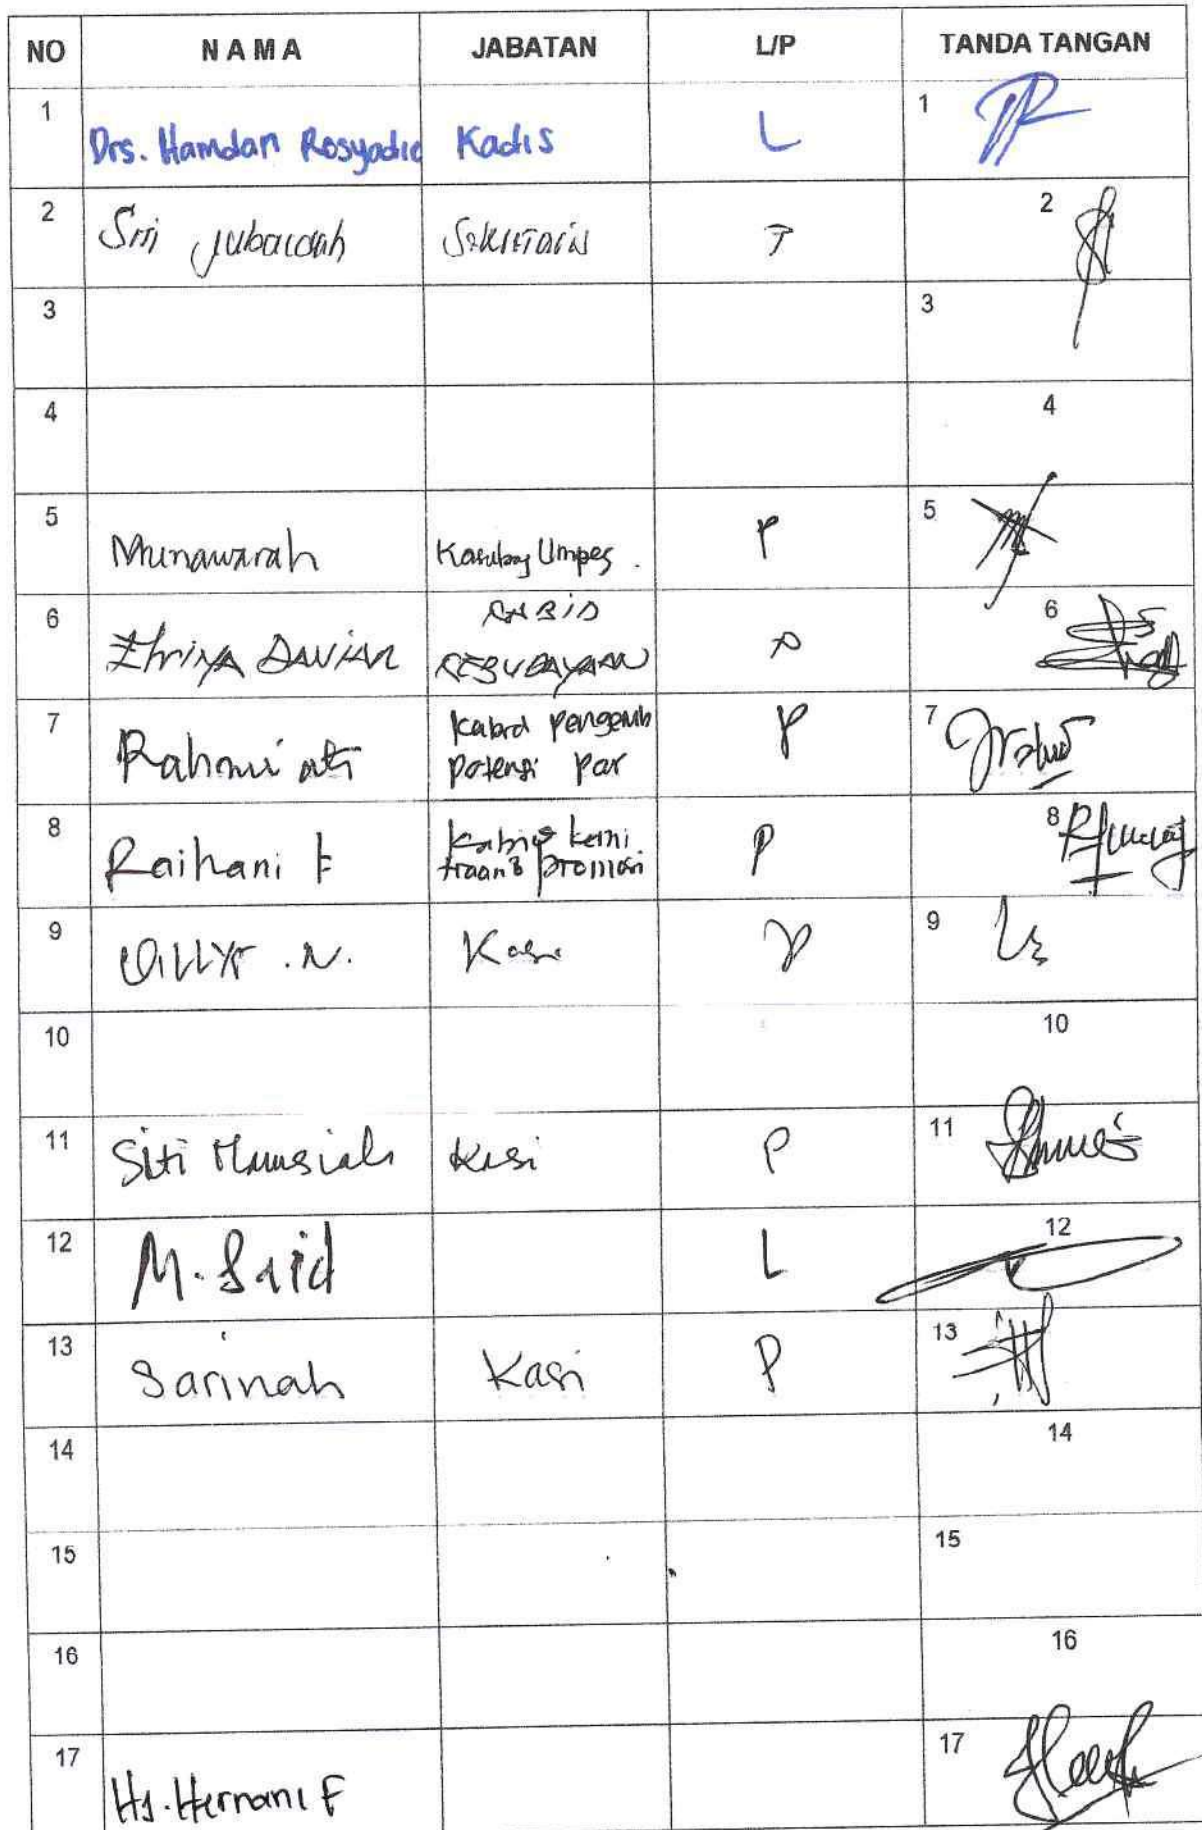 NO NAMA JABATAN L/P TANDA TANGAN
1 Drs. Hamdan Rosyadi Kadis L 1
2 Sri Jubaidah Sekretaris P 2
3 3
4 4
5 Munawarah Kasubag Umpeg. P 5
6 KABID
KEBUDAYAAN P 6
7 Rahmiati Kabid Pengemb
Potensi Par P 7
8 Raihani F Kabid kemi
traan & promosi P 8
9 N. Kasi P 9
10 10
11 Siti Kasi P 11
12 M. Said L 12
13 Sarinah Kasi P 13
14 14
15 15
16 16
17 Hj. Hernani F 17